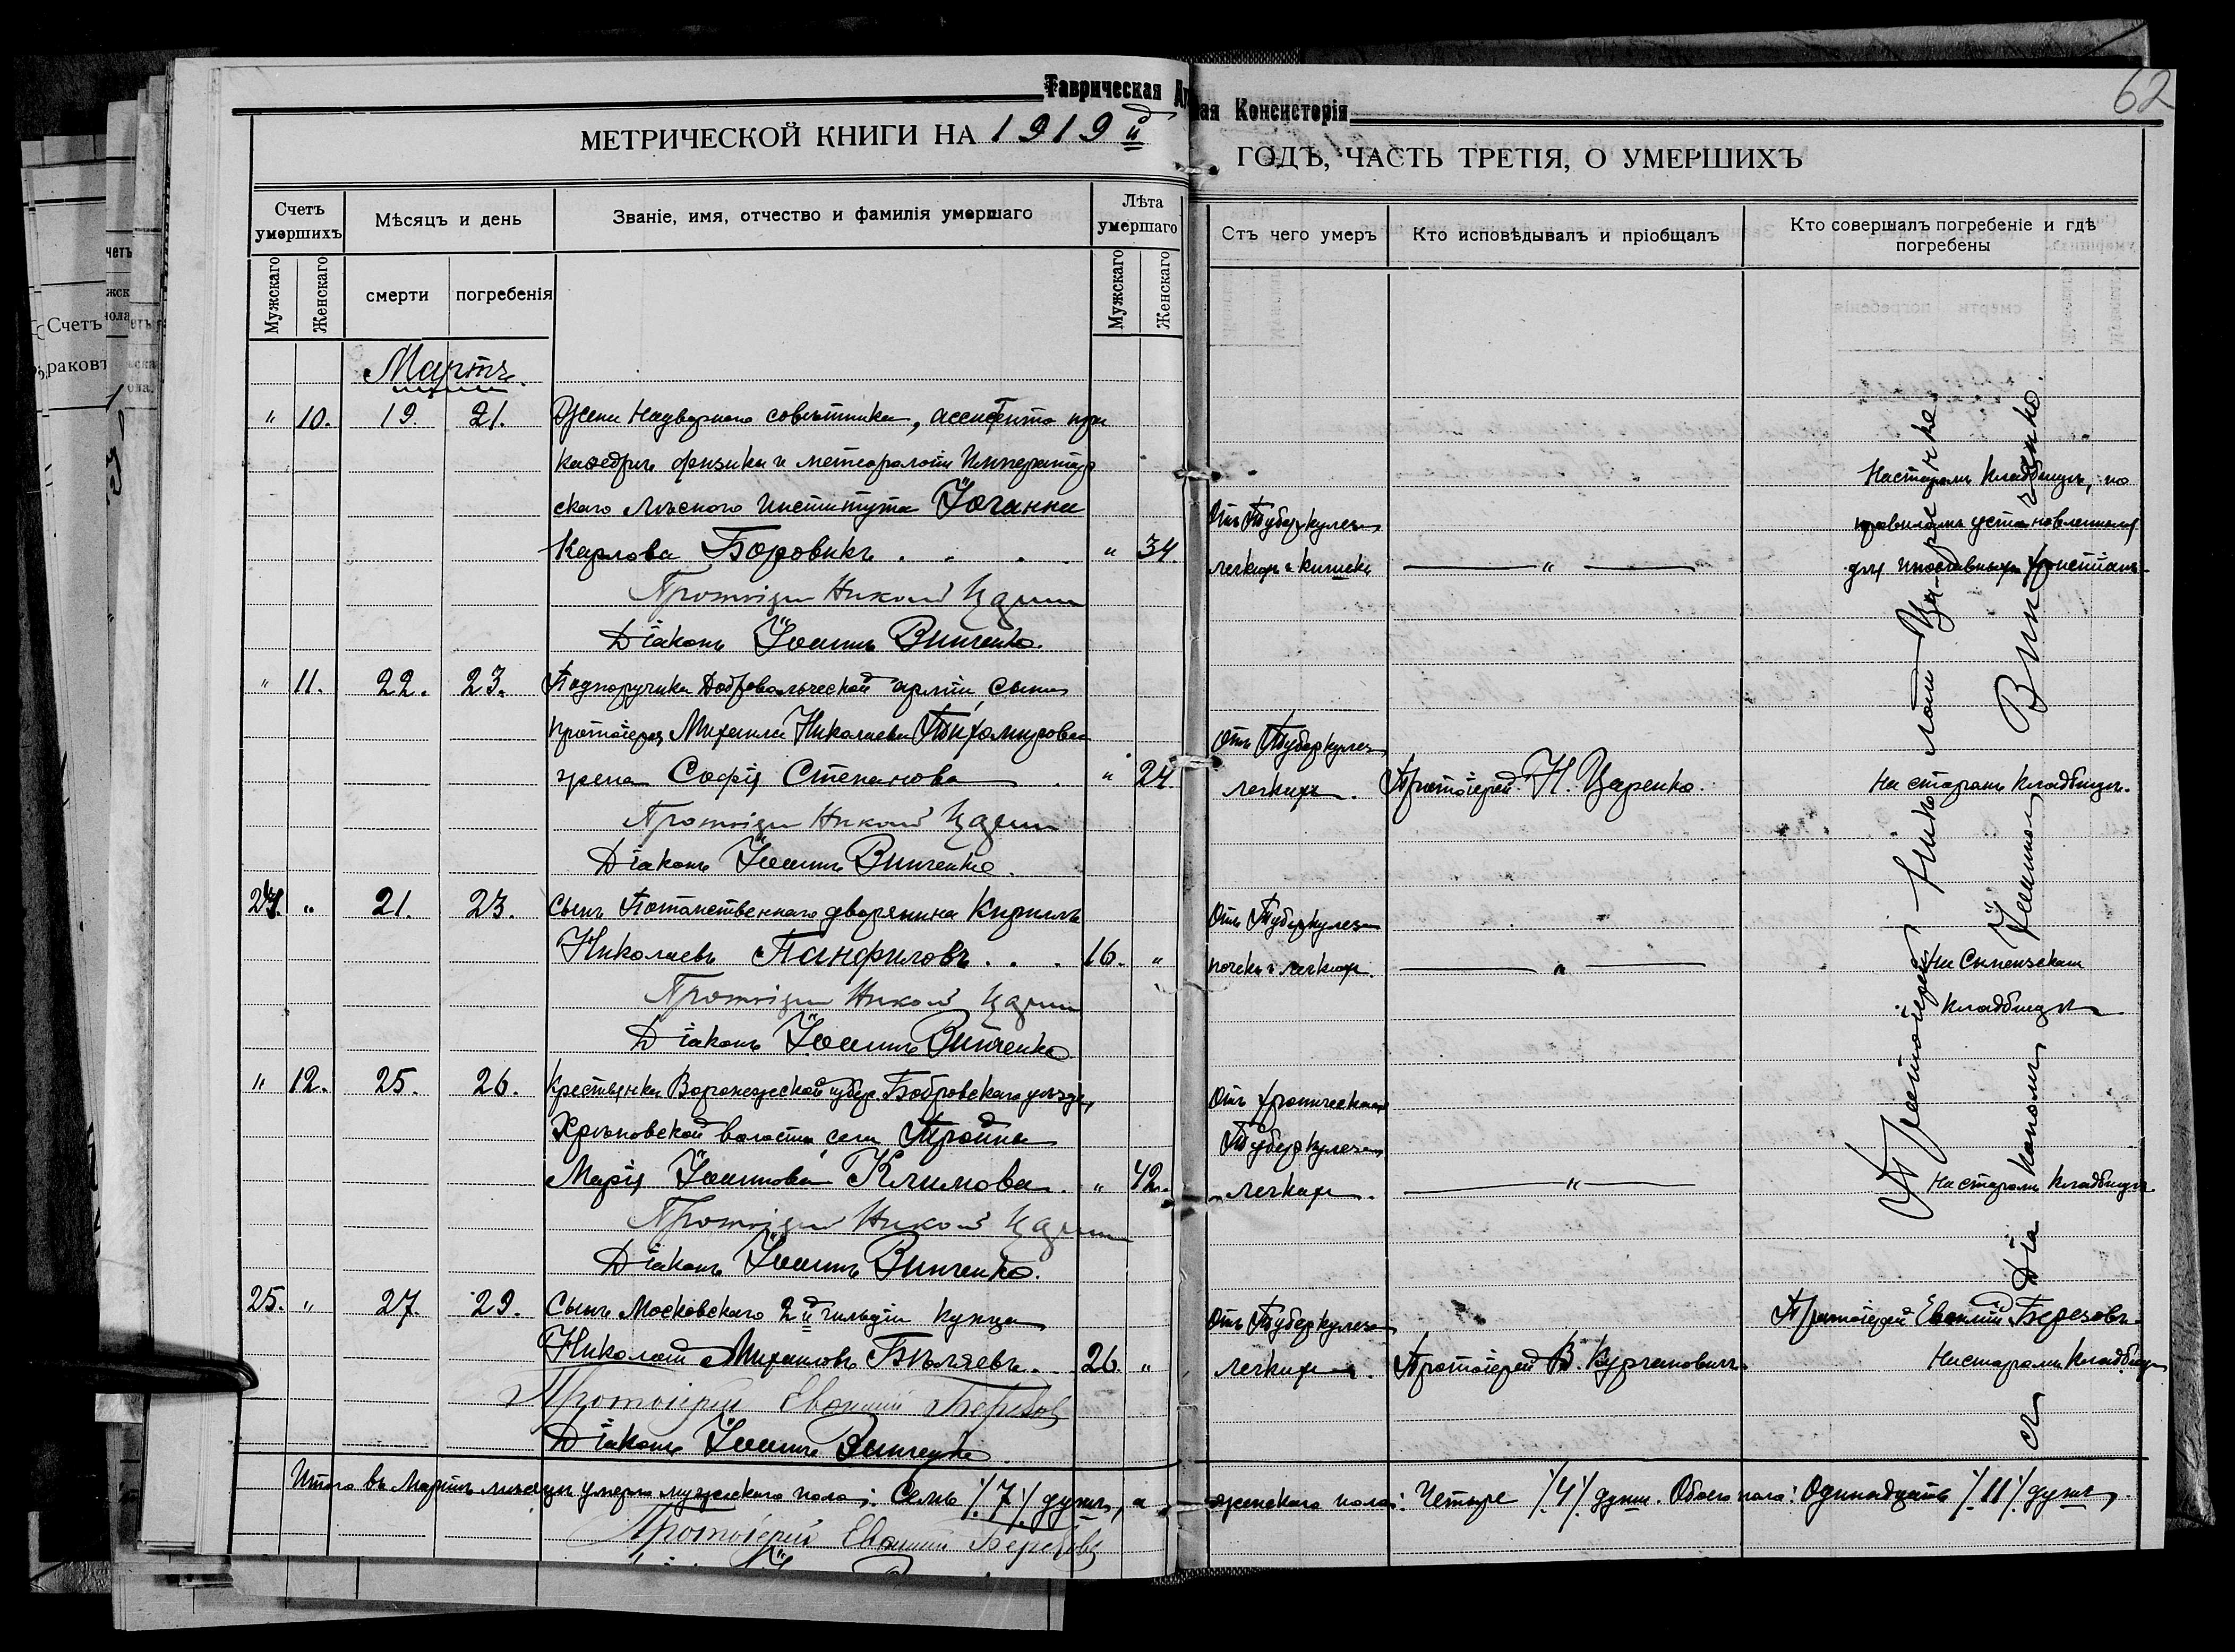 Таврическая
ая Консисторія
62
МЕТРИЧЕСКОЙ КНИГИ НА 1919 й
ГОДЪ, ЧАСТЬ ТРЕТІЯ, О УМЕРШИХЪ
Счетъ умершихъ
Мѣсяцъ и день
Званіе, имя, отчество и фамилія умершаго
Лѣта умершаго
Стъ чего умеръ
Кто исповѣдывалъ и пріобщалъ
Кто совершалъ погребеніе и гдѣ погребены
Мужскаго
Женскаго
смерти
погребенія
Мужскаго
Женскаго
Счетъ
раковъ
Мартъ.
" 10. 19. 21. Жена Надворнаго совѣтника, ассистента при
каѳедрѣ физики и метеорологіи Император
скаго Лѣсного Института Іоганна
Карлова Боровикъ . . . " 34.
Отъ Туберкулеза
легкихъ и кишекъ
"
На старомъ кладбищѣ, по
правиламъ установленнымъ
для инославныхъ христіанъ
Протоіерей Николай Царенко
Діаконъ Іоаннъ Винченко.
" 11. 22. 23. Подпоручика Добровольческой арміи, сына
протоіерея Михаила Николаева Тихомирова
жена Софія Степанова . " 24.
Отъ Туберкулеза
легкихъ.
Протоіерей Н. Царенко.
На старомъ кладбищѣ.
Протоіерей Николай Царенко
Діаконъ Іоаннъ Винченко.
24. " 21. 23. Сынъ Потомственнаго дворянина Кириллъ
Николаевъ Панфиловъ . . . 16. "
Отъ Туберкулеза
почекъ и легкихъ.
"
На
кладбищѣ
Протоіерей Николай Царенко
Діаконъ Іоаннъ Винченко
" 12. 25. 26. Крестьянка Воронежской губер. Бобровскаго уѣзда,
Хрѣновской волости, села Тройна
Марія Іоаннова Климова. " 42.
Отъ хроническаго
Туберкулеза
легкихъ.
"
На старомъ кладбищѣ
Протоіерей Николай Царенко
Діаконъ Іоаннъ Винченко.
25. " 27. 29. Сынъ Московскаго 2й гильдіи купца
Николай Михаиловъ Бѣляевъ. 26. "
Отъ Туберкулеза
легкихъ.
Протоіерей В. Курчановичъ
Протоіерей Евѳимій Березовъ
На старомъ кладбищѣ
Протоіерей Евѳимій Березовъ
Діаконъ Іоаннъ Винченко.
Протоіерей Николай Царенко.
съ Діакономъ Іоанномъ Винченко.
Итого въ Мартѣ мѣсяцѣ умерло мужескаго пола: Семь /7/ душъ, а женскаго пола: Четыре /4/ души. Обоего пола: Одинадцать /11/ душъ.
Протоіерей Евѳимій Березовъ